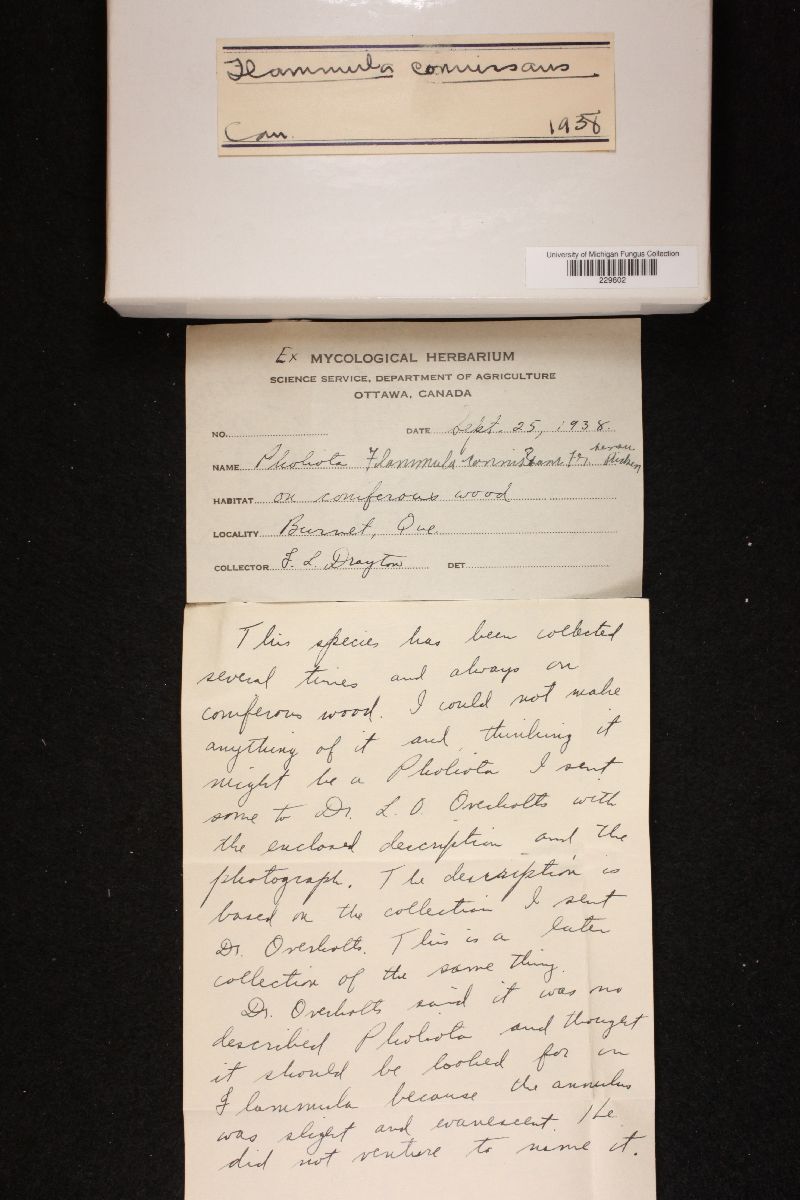 Flammula connissans
Can. 1938
University of Michigan Fungus Collection
229602
Ex MYCOLOGICAL HERBARIUM
SCIENCE SERVICE, DEPARTMENT OF AGRICULTURE
OTTAWA, CANADA
NO. DATE Sept. 25, 1938.
NAME Pholiota Flammula connissans Fr. sensu Ricken
HABITAT on coniferous wood
LOCALITY Burnet, Que.
COLLECTOR F. L. Drayton DET
This species has been collected
several times and always on
coniferous wood. I could not make
anything of it and, thinking it
might be a Pholiota I sent
some to Dr. L. O. Overholts with
the enclosed description and the
photograph. The description is
based on the collection I sent
Dr. Overholts. This is a later
collection of the same thing.
Dr. Overholts said it was no
described Pholiota and thought
it should be looked for in
Flammula because the annulus
was slight and evanescent. He
did not venture to name it.